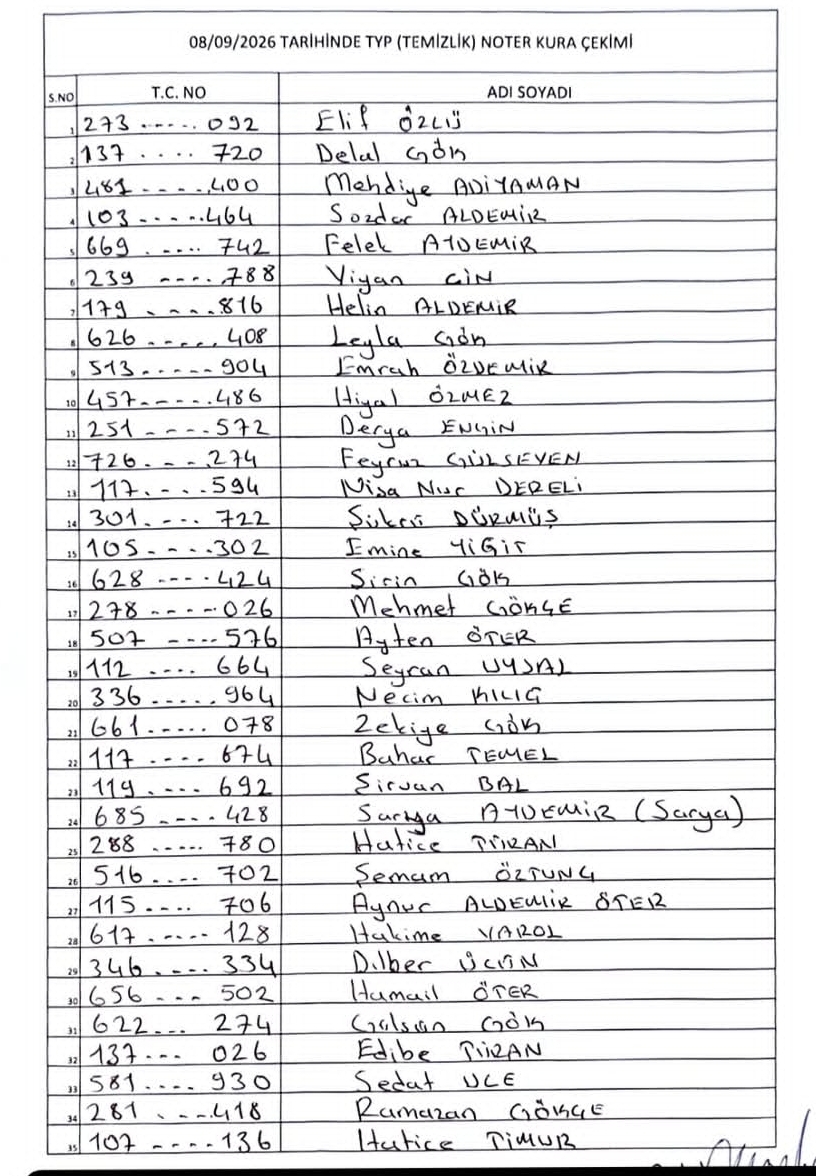 08/09/2026 TARİHİNDE TYP (TEMİZLİK) NOTER KURA ÇEKİMİ
S.NO T.C. NO ADI SOYADI
1 273 ----- 092 Elif ÖZLÜ
2 137 .... 720 Delal GÖK
3 481 ----- 400 Mehdiye ADİYAMAN
4 103 ----- 464 Sozdar ALDEMİR
5 669 ----- 742 Felek AYDEMİR
6 239 ---- 788 Viyan
7 179 ----- 816 Helin ALDEMİR
8 626 ----- 408 Leyla GÖK
9 513 ----- 904 Emrah ÖZDEMİR
10 457 ----- 486 Hiyal ÖZMEZ
11 251 ---- 572 Derya ENGİN
12 726 ---- 274 Feyruz GÜLSEVEN
13 117 ---- 594 Nisa Nur DERELİ
14 301 ---- 722 Şükrü DÜRMÜŞ
15 105 ---- 302 Emine YİĞİT
16 628 ---- 424 Şirin GÖK
17 278 ----- 026 Mehmet GÖKÇE
18 507 ---- 576 Ayten ÖTER
19 112 ---- 664 Seyran UYSAL
20 336 ----- 964 Necim KILIÇ
21 661 ----- 078 Zekiye GÖK
22 117 ---- 674 Bahar TEMEL
23 119 ---- 692 Şirvan BAL
24 685 ---- 428 Sarya AYDEMİR (Sarya)
25 288 ----- 780 Hatice TURAN
26 516 .... 702 Şemam ÖZTUNÇ
27 115 ---- 706 Aynur ALDEMİR ÖTER
28 617 ----- 128 Hakime VAROL
29 346 ---- 334 Dilber
30 656 --- 502 Hamail ÖTER
31 622 --- 274 GÖK
32 137 --- 026 Edibe TURAN
33 581 .... 930 Sedat
34 281 ---- 418 Ramazan GÖKÇE
35 107 ---- 136 Hatice TİMUR